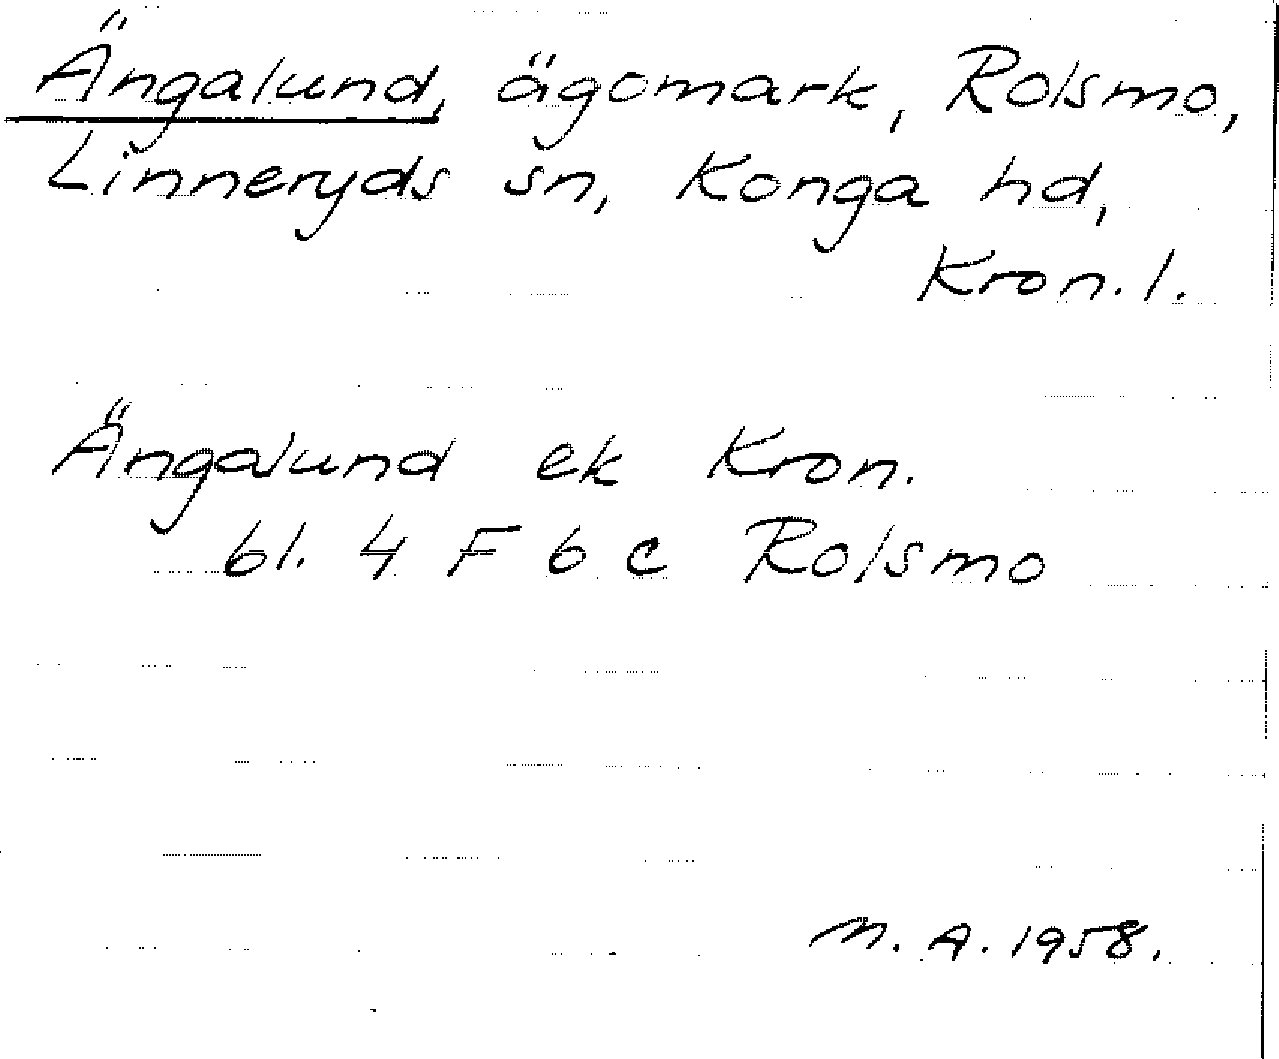 Ängalund, ägomark, Rolsmo,
Linneryds sn, Konga hd,
Kron. l.
Ängalund ek Kron.
bl. 4 F 6 c Rolsmo
M. A. 1958.